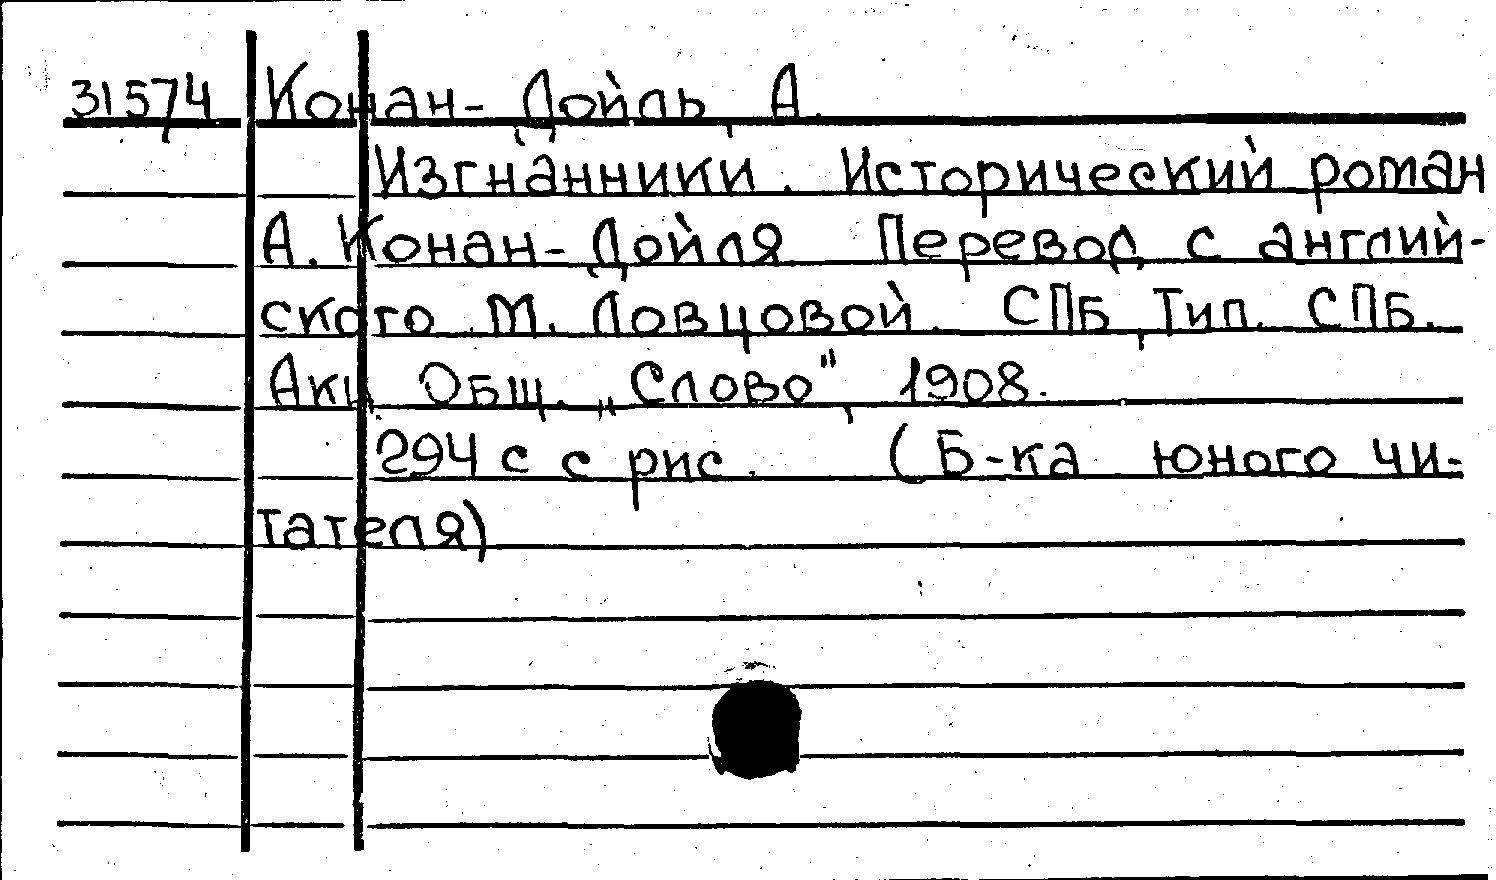 31574 Конан-Дойль, А.
Изгнанники. Исторический роман
А. Конан-Дойля Перевод с англий-
ского М. Ловцовой. СПБ, Тип. СПБ.
Акц. Общ. „Слово", 1908.
294 с с рис. (Б-ка юного чи-
тателя)